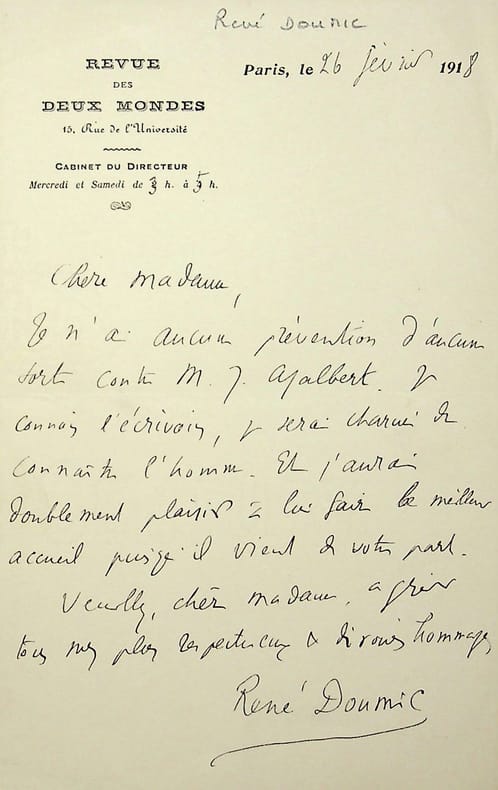 René DOUMIC
REVUE
DES
DEUX MONDES
15, Rue de l'Université
CABINET DU DIRECTEUR
Mercredi et Samedi de 3 h. à 5 h.
Paris, le 26 février 1918
Chère Madame,
Je n'ai aucune prévention d'aucune
sorte contre M. J. Ajalbert. Je
connais l'écrivain, je serai charmé de
connaître l'homme. Et j'aurai
doublement plaisir à lui faire le meilleur
accueil puisqu'il vient de votre part.
Veuillez, chère madame, agréer
tous mes plus respectueux & dévoués hommages,
René Doumic